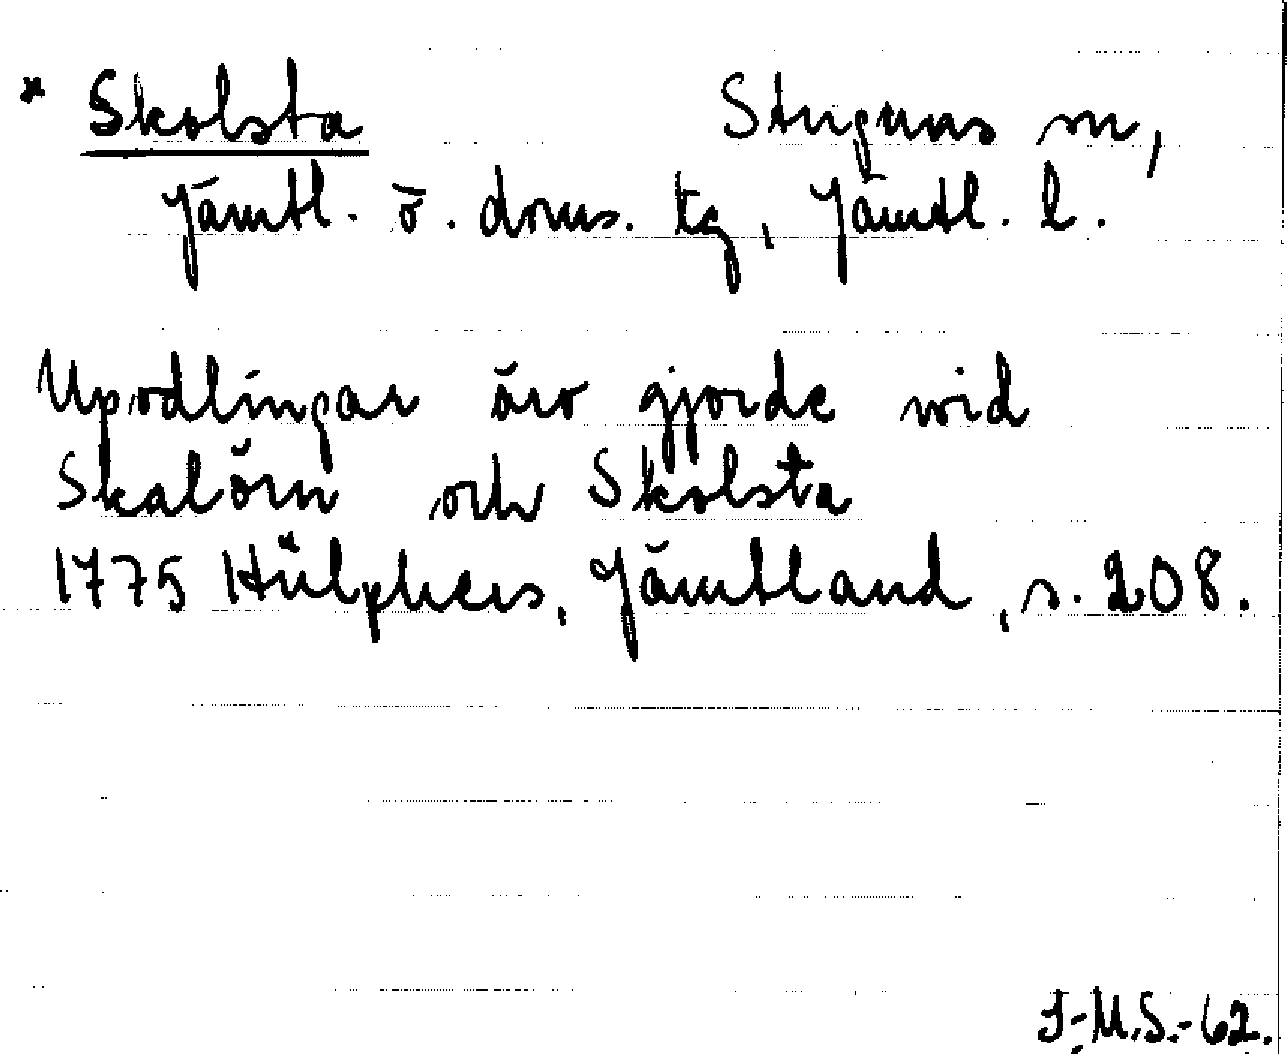 * Skolsta Stuguns sn,
Jämtl. ö. doms. tg, Jämtl. l.
Upodlingar äro gjorde wid
Skalörn och Skolsta
1775 Hülphers, Jämtland, s. 208.
I-M.S.-62.